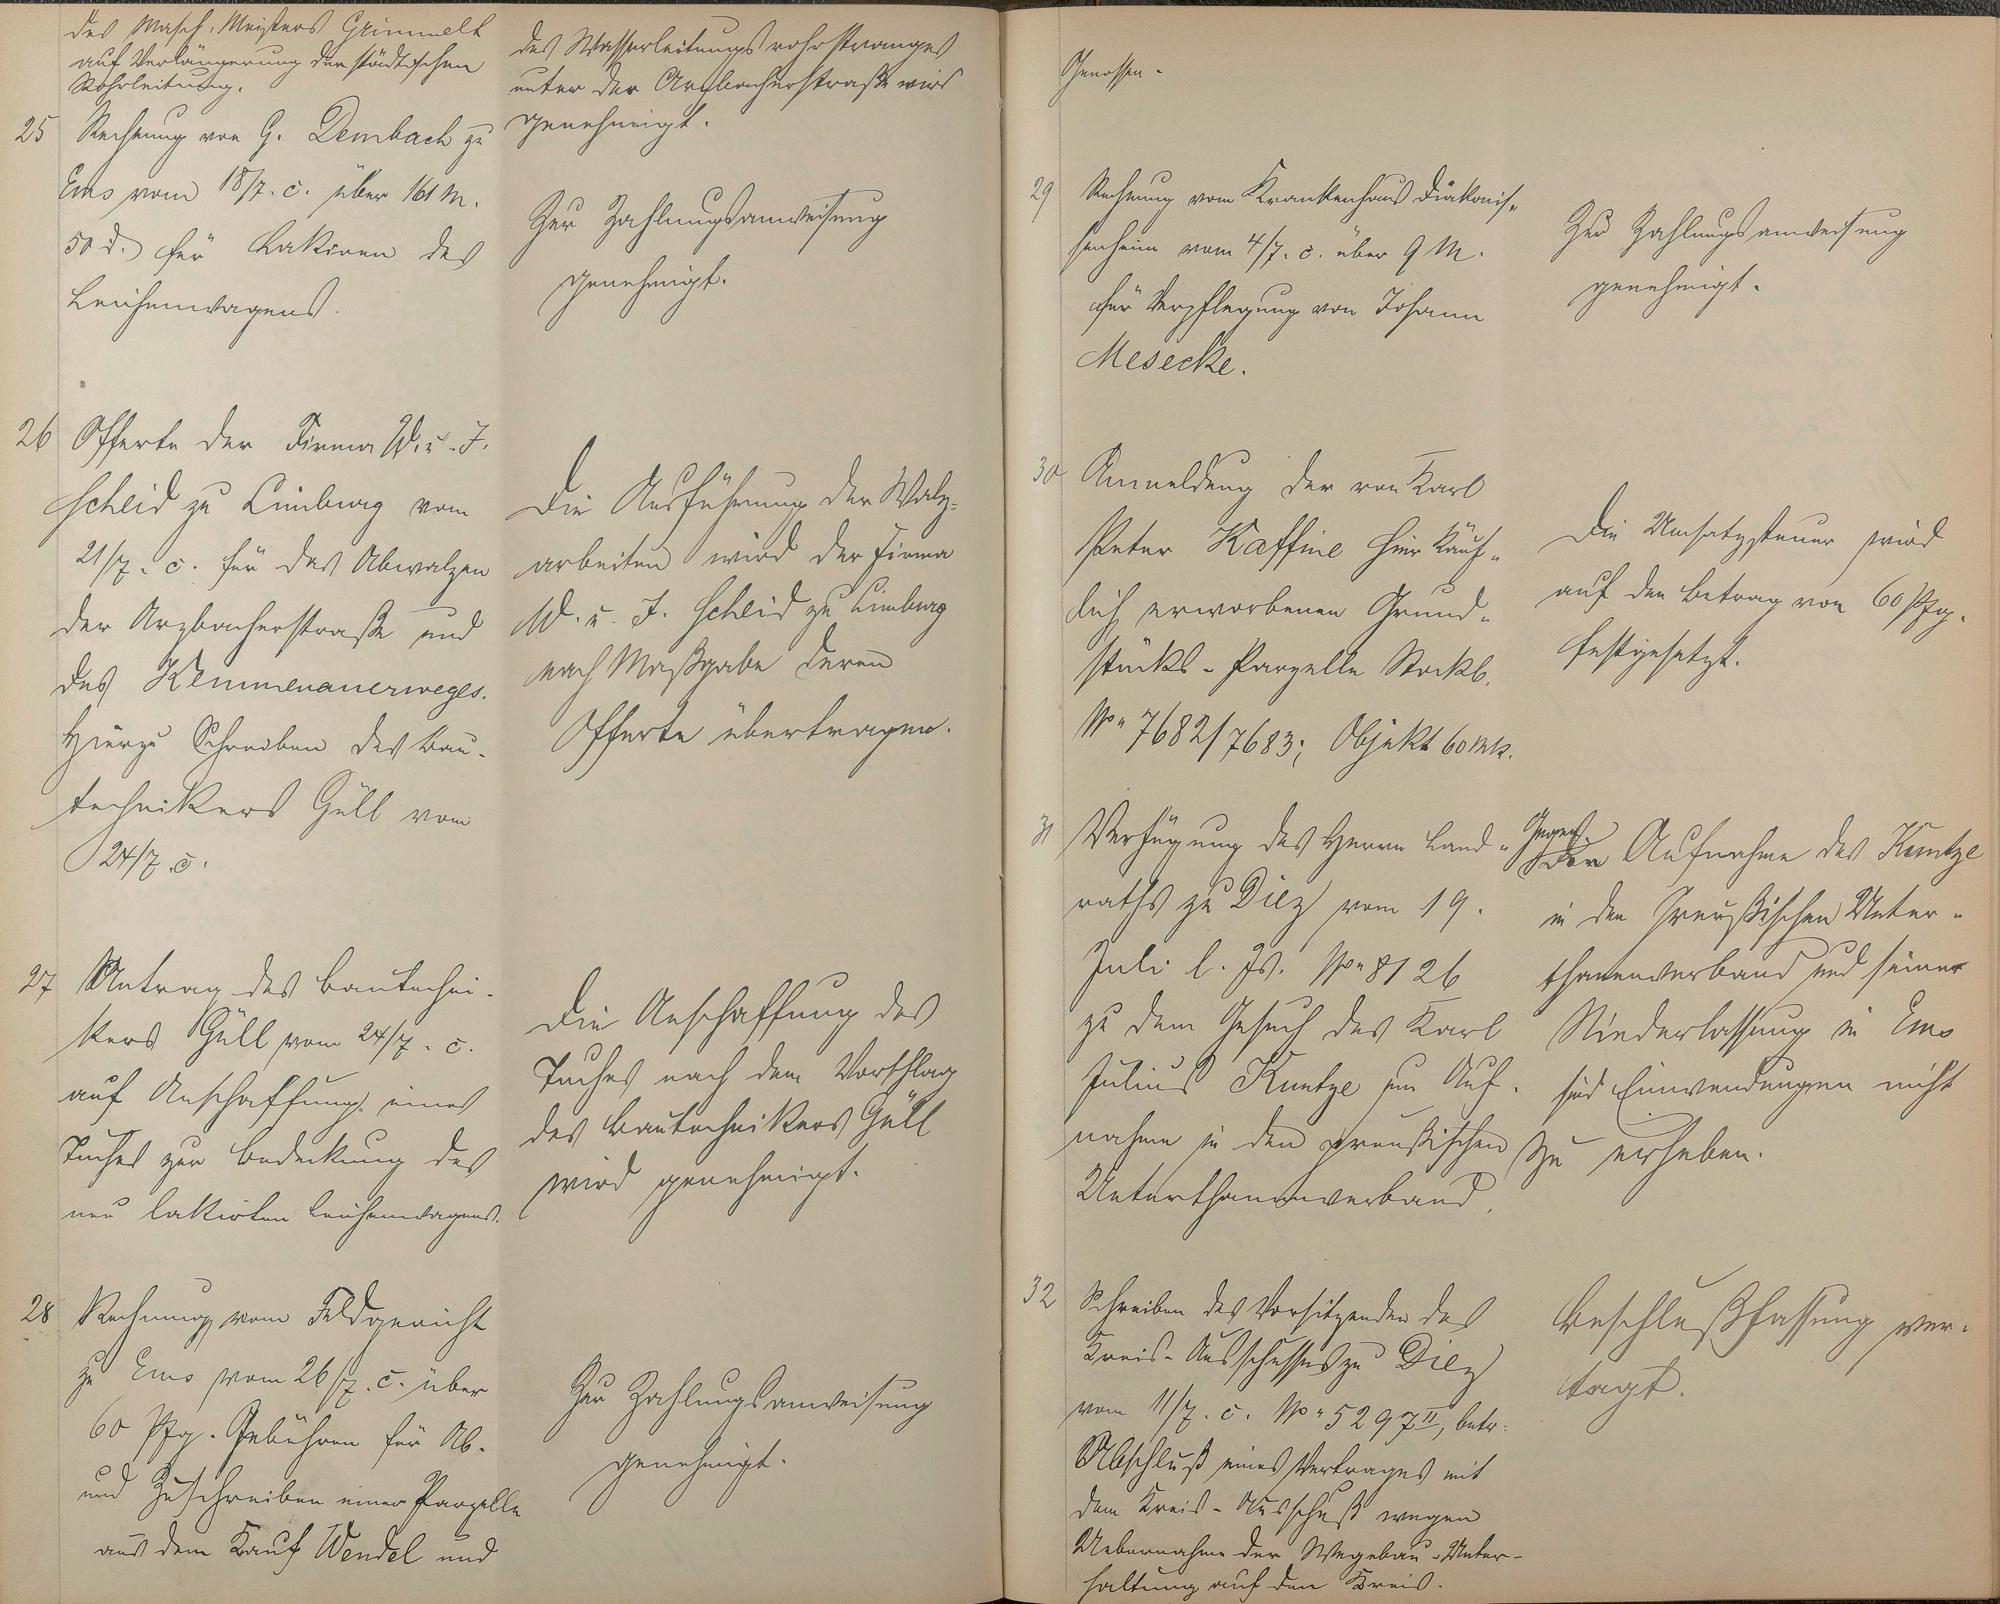 des Masch. Meisters Grimmelt
auf Verlängerung der städtischen
Rohrleitung.
des Wasserleitungsrohrstranges
unter der Arzbacherstraße wird
genehmigt.
25 Rechnung von G. Dembach zu
Ems vom 18/7. c. über 161 M.
50 d. für Lakiren des
Leichenwagens.
Zur Zahlungsanweisung
genehmigt.
26 Offerte der Firma W. u. J.
Scheid zu Limburg vom
21/7. c. für das Abwalzen
der Arzbacherstraße und
des Kemmenauerweges.
Hierzu Schreiben des Bau-
technikers Güll vom
24/7. c.
Die Ausführung der Walz-
arbeiten wird der Firma
W. u. J. Scheid zu Limburg
nach Maßgabe deren
Offerte übertragen.
27 Antrag des Bautechni-
kers Güll vom 24/7. c.
auf Anschaffung eines
Tuches zur Bedeckung des
neu lakirten Leichenwagens.
Die Anschaffung des
Tuches nach dem Vorschlag
des Bautechnikers Güll
wird genehmigt.
28 Rechnung vom Feldgericht
zu Ems vom 26/7. c. über
60 Pfg. Gebühren für Ab-
und Zuschreiben einer Parzelle
aus dem Kauf Wendel und
Zur Zahlungsanweisung
genehmigt.
Genossen.
29 Rechnung vom Krankenhaus Diakonis-
senheim vom 4/7. c. über 9 M.
für Verpflegung von Johann
Mesecke.
Zur Zahlungsanweisung
genehmigt.
30 Anmeldung der von Karl
Peter Kaffine hier käuf-
lich erworbenen Grund-
stücks-Parzelle Stockb.
No. 7682/7683; Objekt 60 Mk.
Die Umsatzsteuer wird
auf den Betrag von 60 Pfg.
festgesetzt.
31 Verfügung des Herrn Land-
raths zu Diez vom 19.
Juli l. Js. No. 8126
zu dem Gesuch des Karl
Julius Kuntze um Auf-
nahme in den preußischen
Unterthanenverband.
Gegen
der Aufnahme des Kuntze
in den Preußischen Unter-
thanenverband und seiner
Niederlassung in Ems
sind Einwendungen nicht
zu erheben.
32 Schreiben des Vorsitzenden des
Kreis-Ausschusses zu Diez
vom 11/7. c. No. 5297 II, betr.
Abschluß eines Vertrages mit
dem Kreis-Ausschuß wegen
Uebernahme der Wegebau-Unter-
haltung auf den Kreis.
Beschlußfassung ver-
tagt.